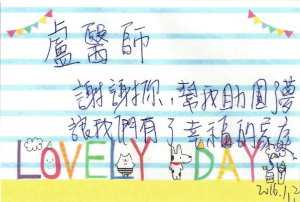 盧醫師
謝謝你，幫我助圓夢
讓我們有了幸福的家庭
LOVELY DAY
2016.1.2